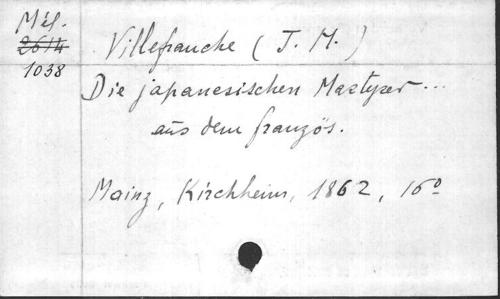 Mél.
2614
1038
Villefranche (J. M.)
Die japanesischen Martyrer...
aus dem französ.
Mainz, Kirchheim, 1862, 16º